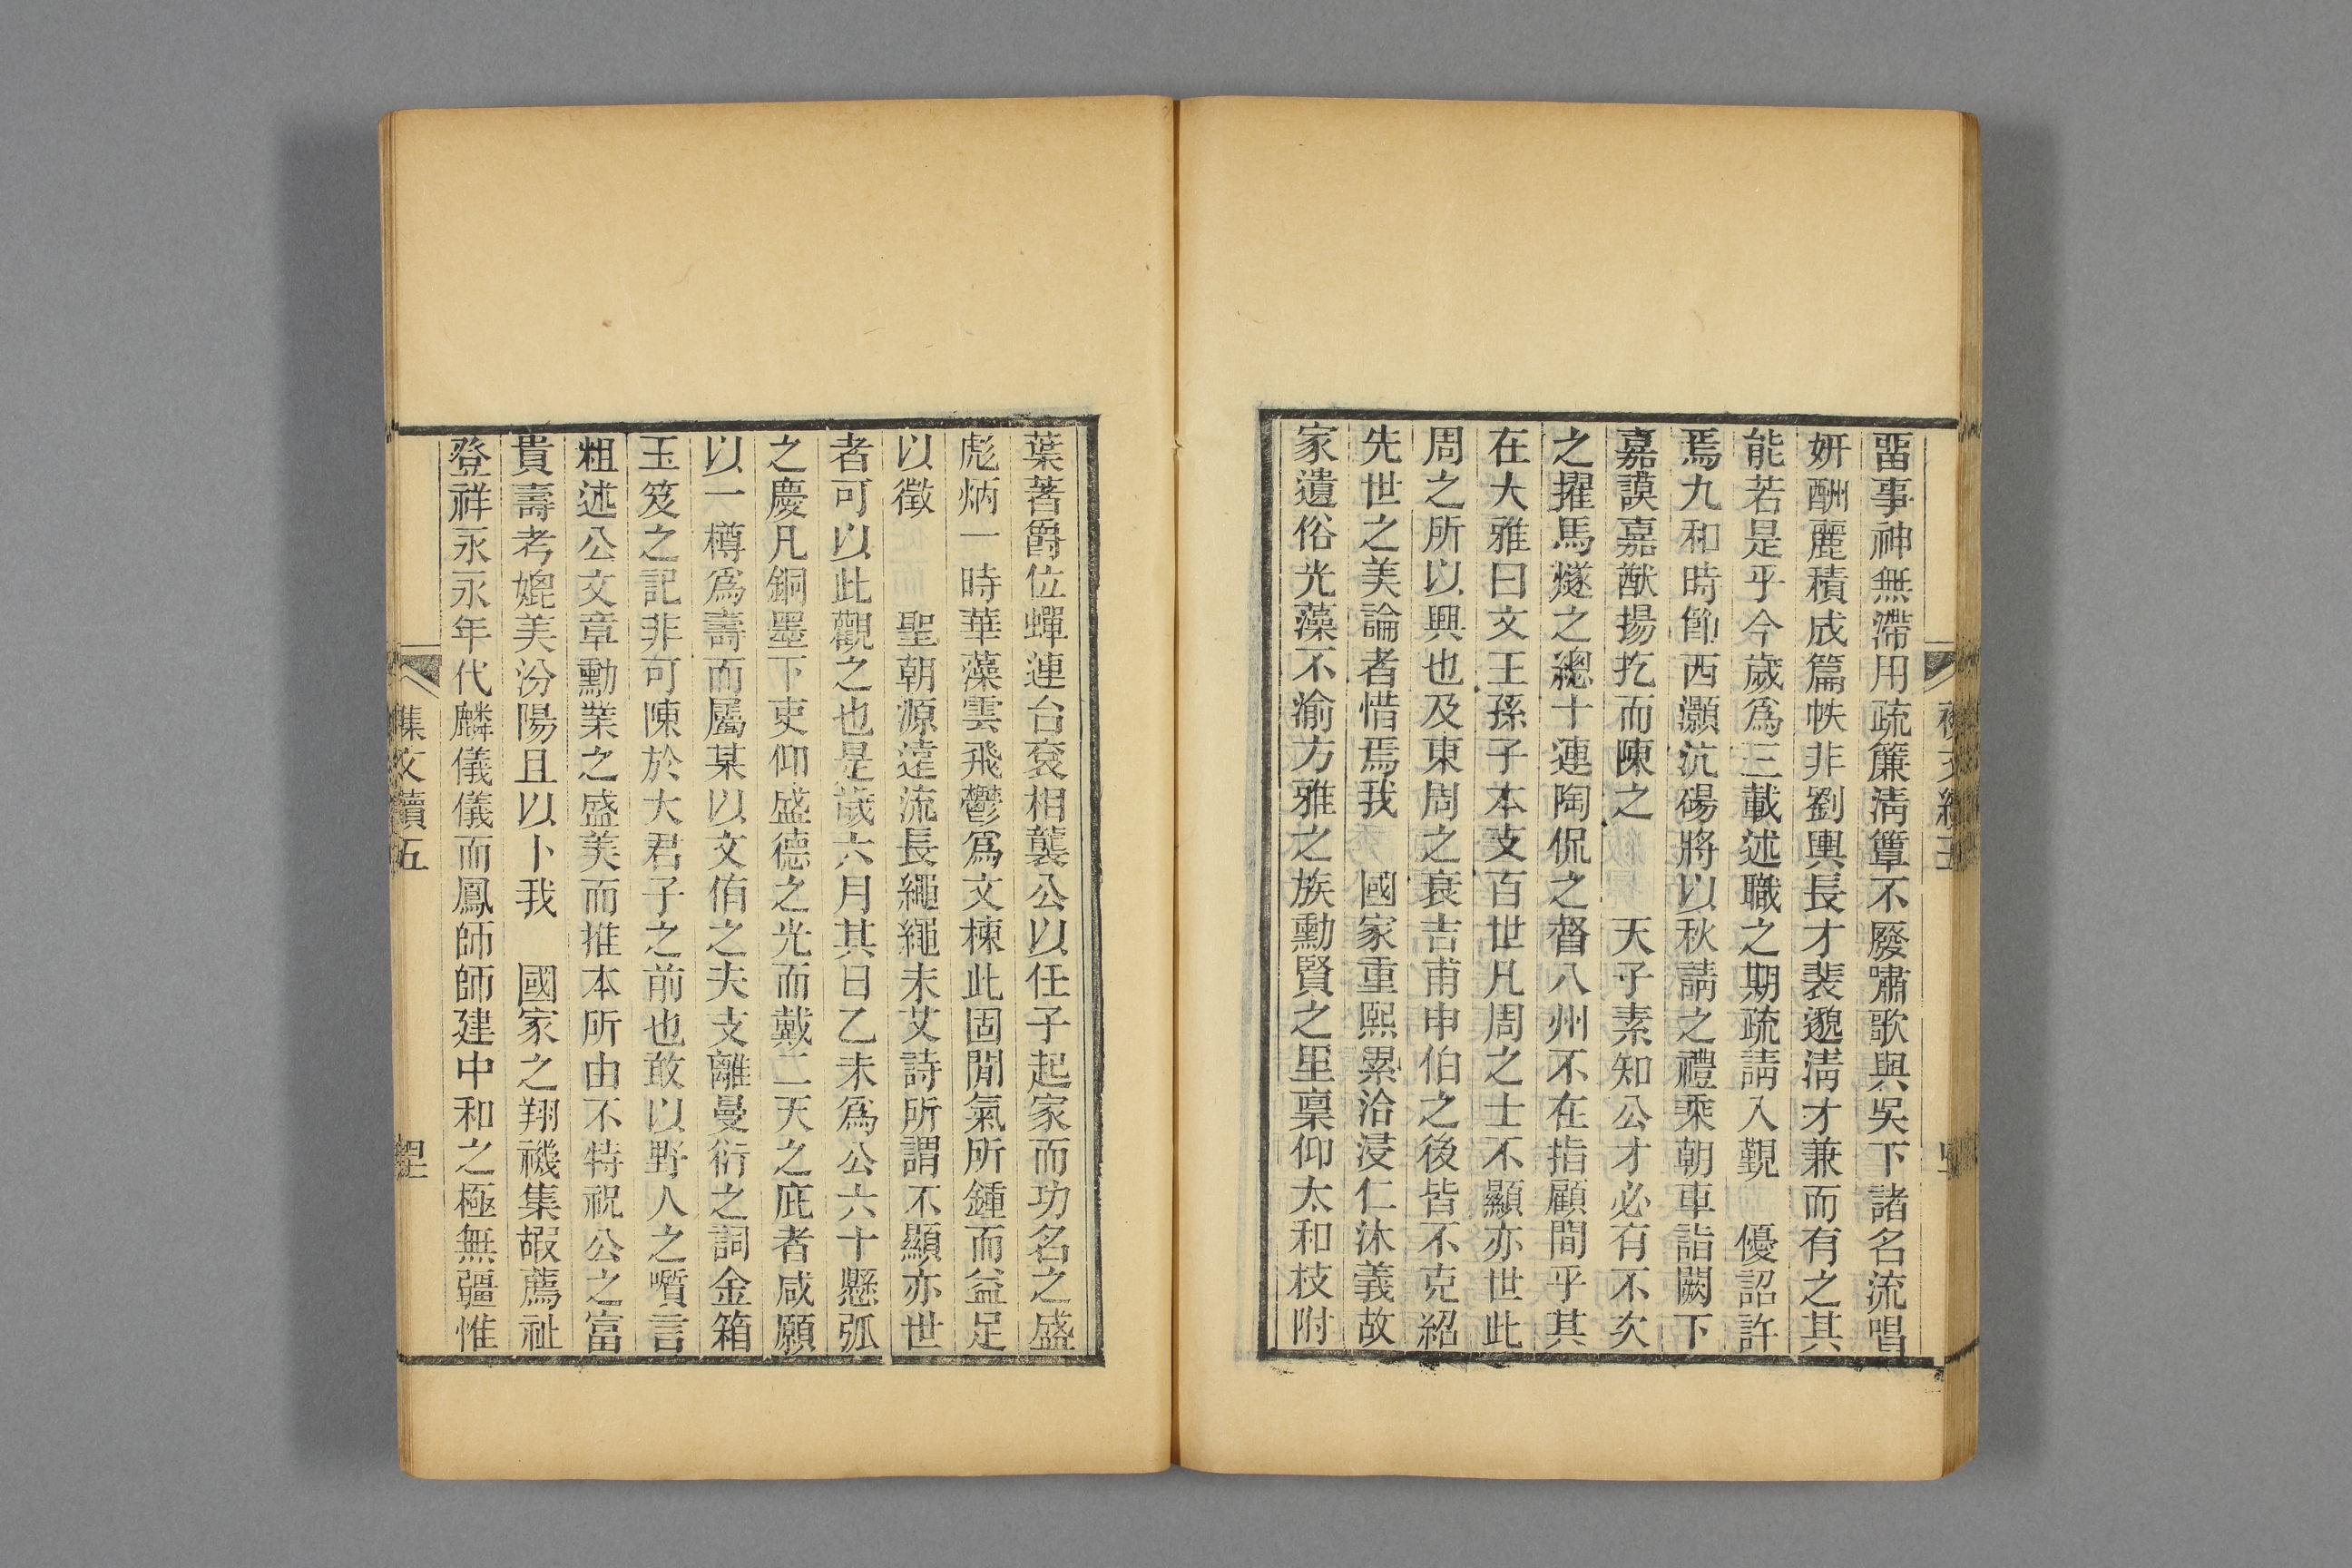 畱事神無滯用疏簾淸簟不廢嘯歌與吳下諸名流唱
妍酬麗積成篇帙非劉輿長才裴邈淸才兼而有之其
能若是乎今歲爲三載述職之期疏請入覲 優詔許
焉九和時節西灝沆碭將以秋請之禮乘朝車詣闕下
嘉謨嘉猷揚扢而陳之 天子素知公才必有不次
之擢馬燧之總十連陶侃之督八州不在指顧間乎其
在大雅曰文王孫子本支百世凡周之士不顯亦世此
周之所以興也及東周之衰吉甫申伯之後皆不克紹
先世之美論者惜焉我 國家重熙累洽浸仁沐義故
家遺俗光藻不渝方雅之族勳賢之里稟仰太和枝附
葉著爵位蟬連台袞相襲公以任子起家而功名之盛
彪炳一時華藻雲飛鬱爲文棟此固閒氣所鍾而益足
以徵 聖朝源遠流長繩繩未艾詩所謂不顯亦世
者可以此觀之也是歲六月其日乙未爲公六十懸弧
之慶凡銅墨下吏仰盛德之光而戴二天之庇者咸願
以一樽爲壽而屬某以文侑之夫支離曼衍之詞金箱
玉笈之記非可陳於大君子之前也敢以野人之嚽言
粗述公文章勳業之盛美而推本所由不特祝公之富
貴壽考媲美汾陽且以卜我 國家之翔禨集嘏薦祉
登祥永永年代麟儀儀而鳳師師建中和之極無疆惟
集文續五